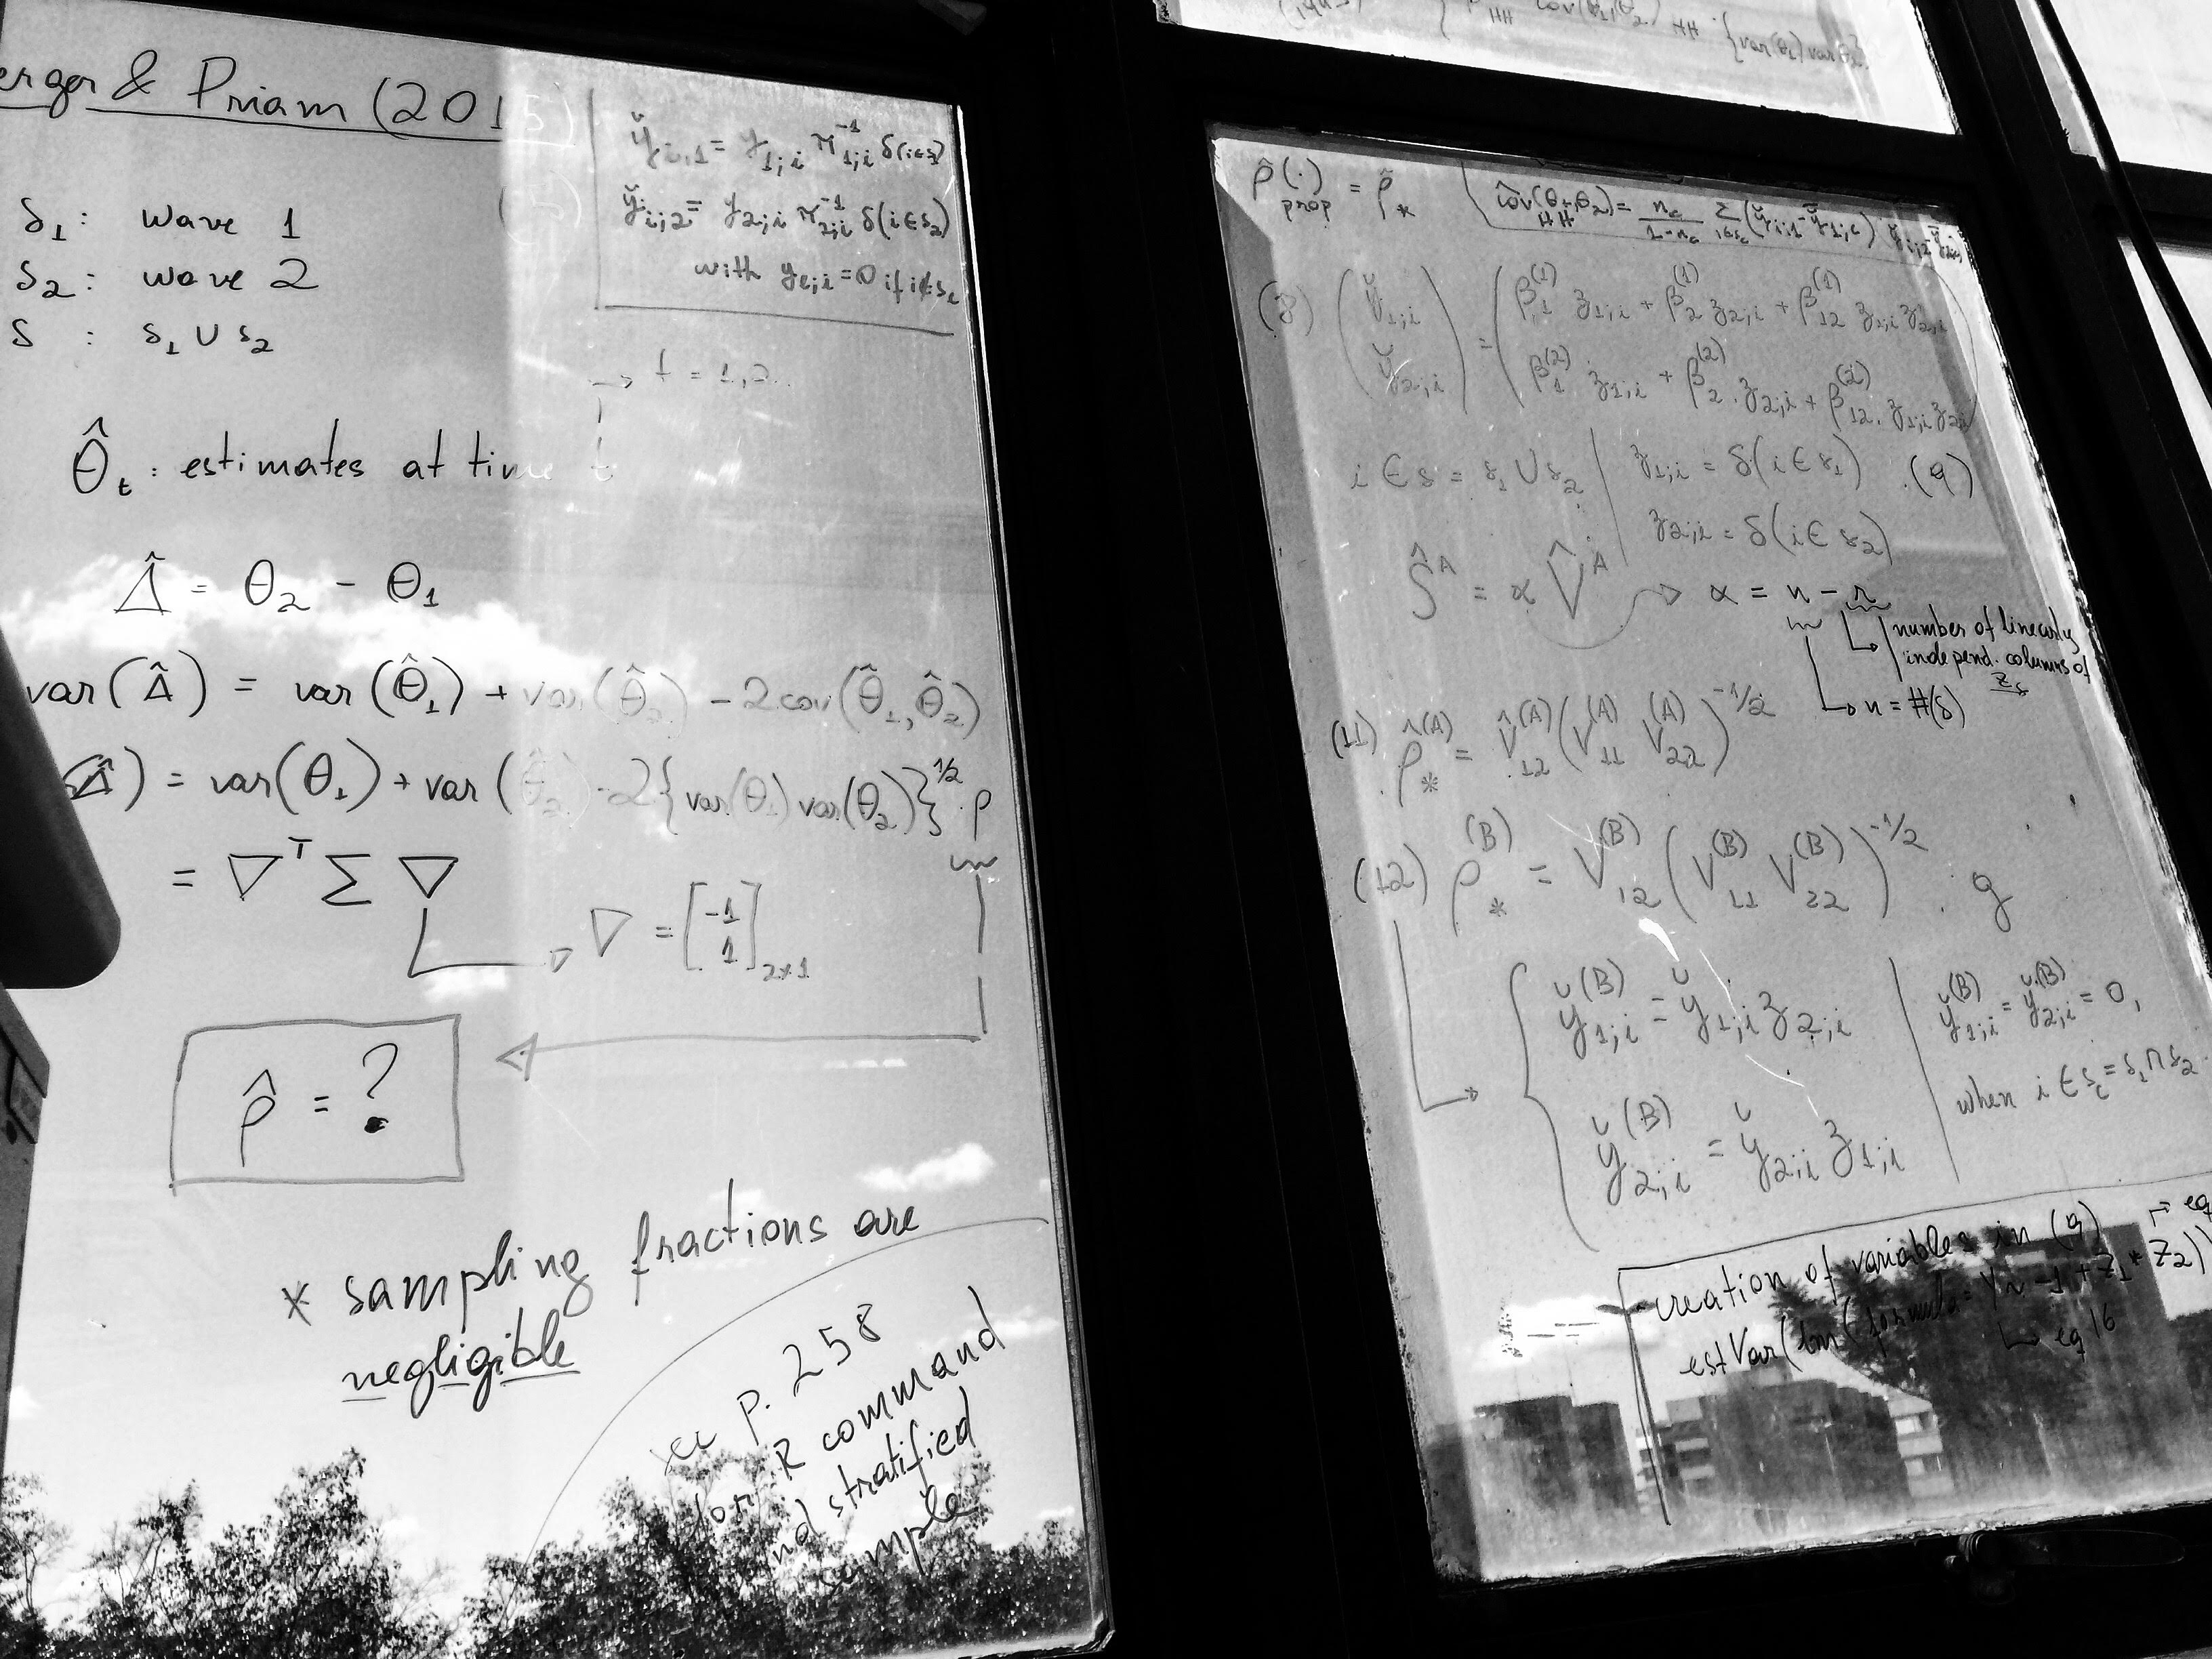 erger & Priam (2015)
s₁: wave 1
s₂: wave 2
s : s₁ ∪ s₂
y̆_{i,1} = y_{1;i} π⁻¹_{1;i} δ(i∈s₁)
y̆_{i;2} = y_{2;i} π⁻¹_{2;i} δ(i∈s₂)
with y_{ℓ;i} = 0 if i∉s_ℓ
→ t = 1,2..
θ̂_t : estimates at time t
Δ̂ = θ₂ - θ₁
var(Δ̂) = var(θ̂₁) + var(θ̂₂) - 2cov(θ̂₁,θ̂₂)
(Δ̂) = var(θ₁) + var(θ̂₂) - 2{var(θ₁) var(θ₂)}^{1/2} · ρ
= ∇ᵀ Σ ∇
∇ = [-1 1]_{2×1}
ρ̂ = ?
* sampling fractions are
negligible
p. 258
for R command
nd stratified
sample
cov(θ₁,θ₂)_HH · {var(θ₁) var
ρ̂(·)_prop = ρ̂_*
côv(θ₁,θ₂)_HH = n_c/(1-n_c) Σ_{i∈s_c} (y̆_{i;1} - y̆_{1;c})
(y̆_{1;i} y̆_{2;i}) = (β₁^{(1)} z_{1;i} + β₂^{(1)} z_{2;i} + β₁₂^{(1)} z_{1;i} z_{2;i}
β₁^{(2)} z_{1;i} + β₂^{(2)} · z_{2;i} + β₁₂^{(2)} · z_{1;i} z_{2;i})
i ∈ s = s₁ ∪ s₂ | z_{1;i} = δ(i ∈ s₁) (9)
z_{2;i} = δ(i ∈ s₂)
Ŝ^A = α V̂^A → α = n - r
number of linearly
independ. columns of
Z_s
→ n = #(s)
(11) ρ̂_*^{(A)} = V̂₁₂^{(A)} (V₁₁^{(A)} V₂₂^{(A)})^{-1/2}
(12) ρ_*^{(B)} = V₁₂^{(B)} (V₁₁^{(B)} V₂₂^{(B)})^{-1/2} · g
y̆_{1;i}^{(B)} = y̆_{1;i} z_{2;i}
y̆_{2;i}^{(B)} = y̆_{2;i} z_{1;i}
y̆_{1;i}^{(B)} = y̆_{2;i}^{(B)} = 0,
when i ∈ s_c = s₁ ∩ s₂
eq
creation of variables in (9)
estVar(lm(formula = Y ~ -1 + Z₁ * Z₂))
→ eq 16